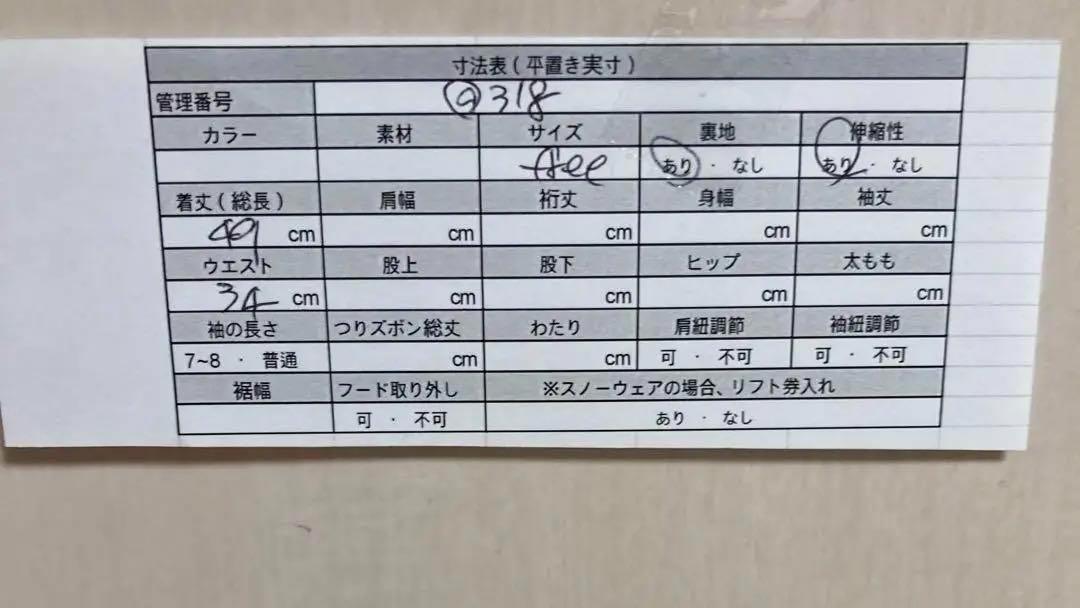 寸法表(平置き実寸)
管理番号 @318
カラー 素材 サイズ 裏地 伸縮性
free あり・なし あり・なし
着丈(総長) 肩幅 裄丈 身幅 袖丈
49 cm cm cm cm cm
ウエスト 股上 股下 ヒップ 太もも
34 cm cm cm cm cm
袖の長さ つりズボン総丈 わたり 肩紐調節 袖紐調節
7~8・普通 cm cm 可・不可 可・不可
裾幅 フード取り外し ※スノーウェアの場合、リフト券入れ
可・不可 あり・なし